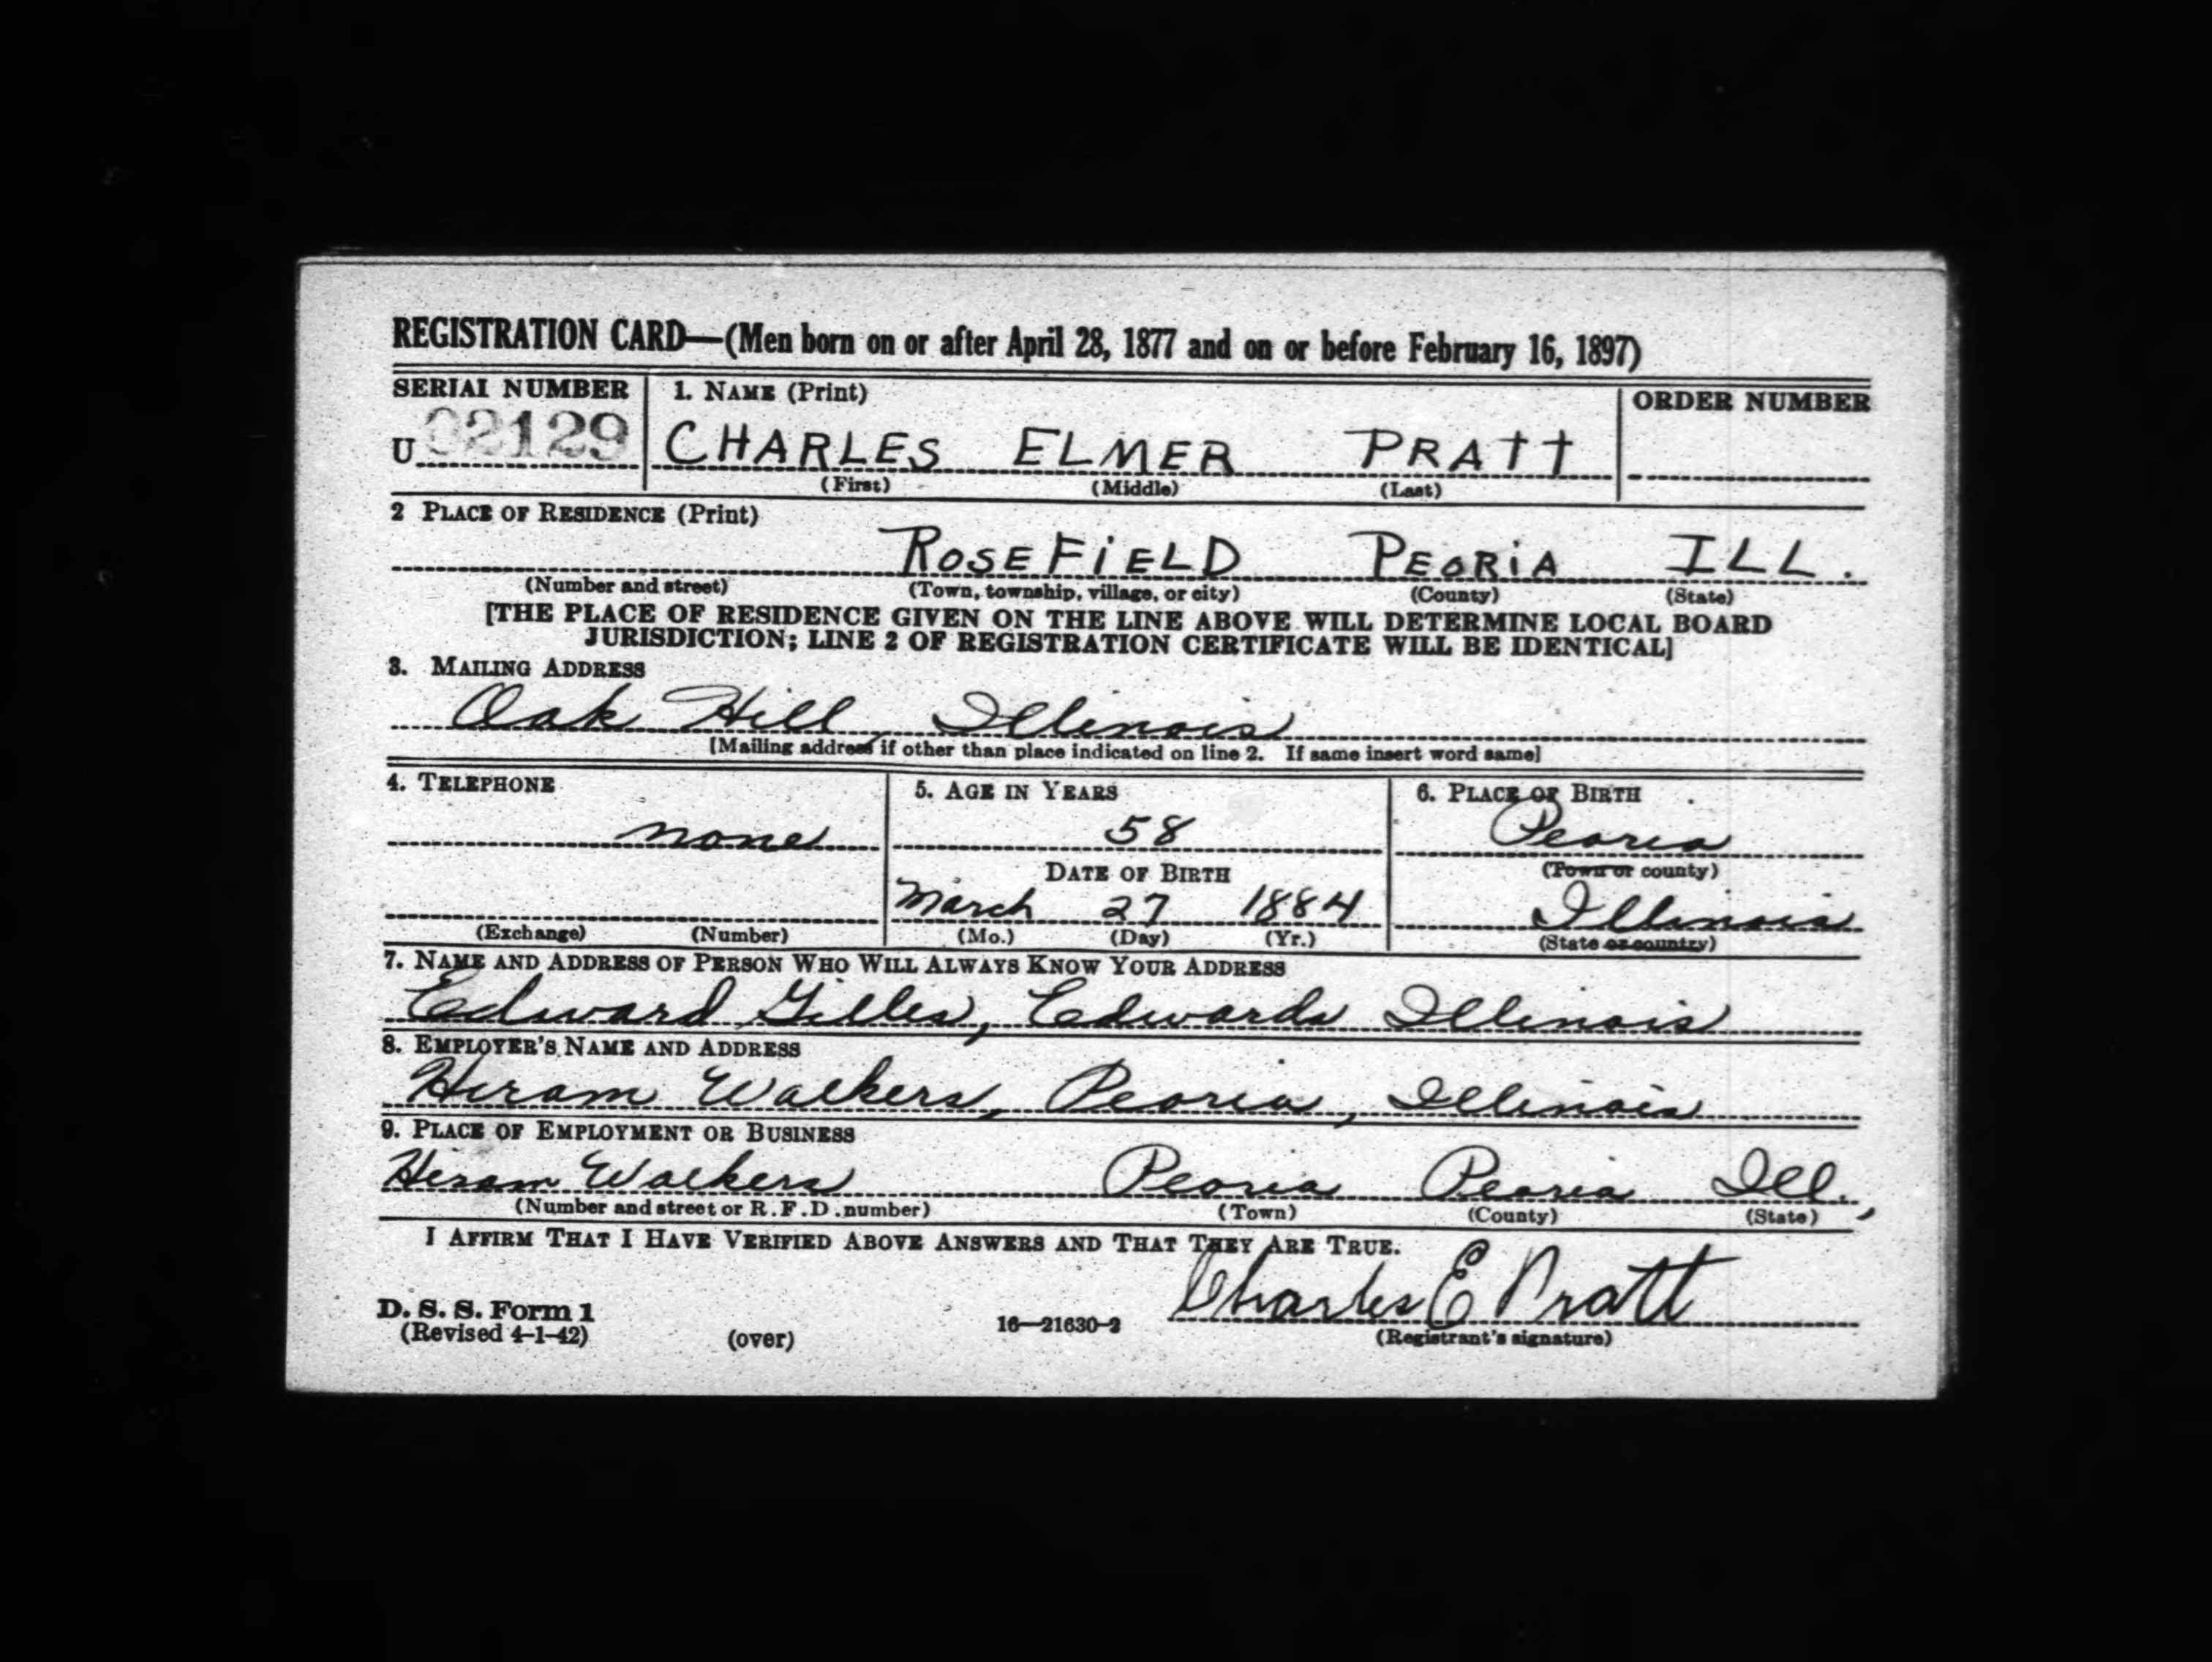 REGISTRATION CARD—(Men born on or after April 28, 1877 and on or before February 16, 1897)
SERIAL NUMBER 1. NAME (Print) ORDER NUMBER
U 02129 CHARLES ELMER PRATT
(First) (Middle) (Last)
2 PLACE OF RESIDENCE (Print)
ROSEFIELD PEORIA ILL.
(Number and street) (Town, township, village, or city) (County) (State)
[THE PLACE OF RESIDENCE GIVEN ON THE LINE ABOVE WILL DETERMINE LOCAL BOARD
JURISDICTION; LINE 2 OF REGISTRATION CERTIFICATE WILL BE IDENTICAL]
3. MAILING ADDRESS
Oak Hill, Illinois
[Mailing address if other than place indicated on line 2. If same insert word same]
4. TELEPHONE 5. AGE IN YEARS 6. PLACE OF BIRTH
none 58 Peoria
DATE OF BIRTH (Town or county)
March 27 1884 Illinois
(Exchange) (Number) (Mo.) (Day) (Yr.) (State or country)
7. NAME AND ADDRESS OF PERSON WHO WILL ALWAYS KNOW YOUR ADDRESS
Edward Gilles, Edwards Illinois
8. EMPLOYER'S NAME AND ADDRESS
Hiram Walkers, Peoria, Illinois
9. PLACE OF EMPLOYMENT OR BUSINESS
Hiram Walkers Peoria Peoria Ill.,
(Number and street or R.F.D. number) (Town) (County) (State)
I AFFIRM THAT I HAVE VERIFIED ABOVE ANSWERS AND THAT THEY ARE TRUE.
Charles E Pratt
D. S. S. Form 1
(Revised 4-1-42) (over) 16—21630-2 (Registrant's signature)